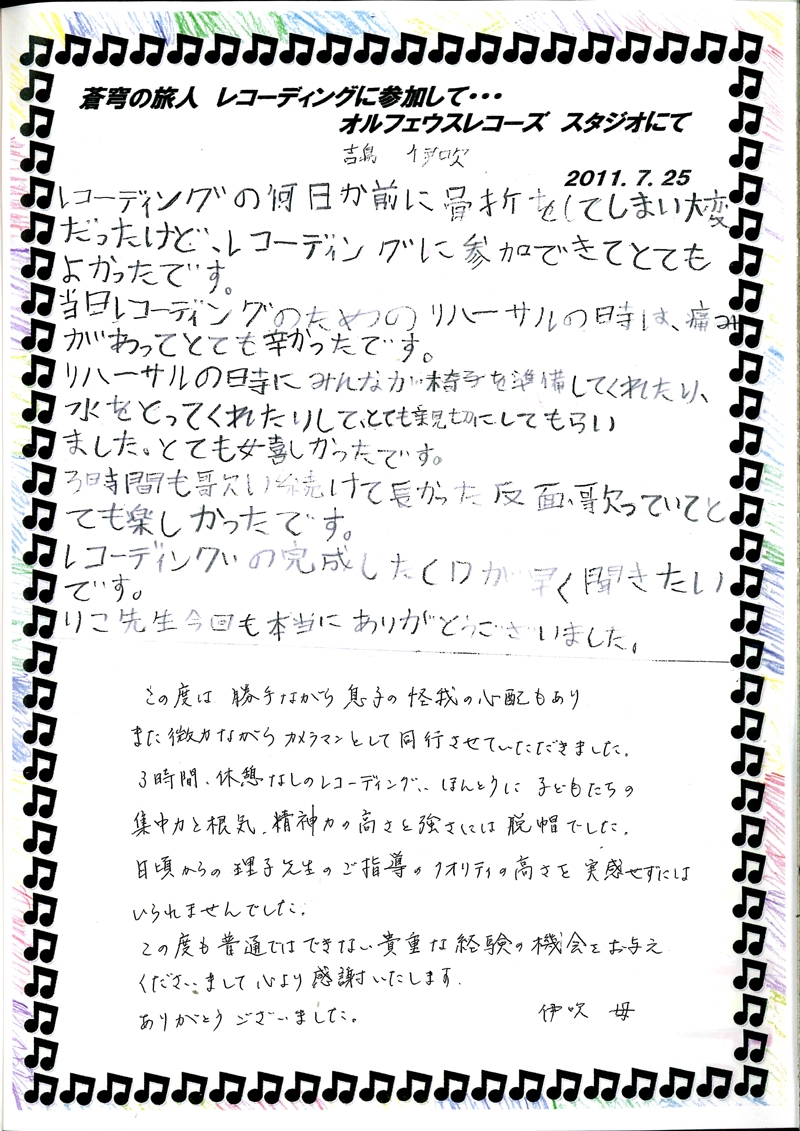 蒼穹の旅人 レコーディングに参加して・・・
オルフェウスレコーズ スタジオにて
吉島 伊吹
2011.7.25
レコーディングの何日か前に骨折をしてしまい大変
だったけど、レコーディングに参加できてとても
よかったです。
当日レコーディングのためのリハーサルの時は、痛み
があってとても辛かったです。
リハーサルの時にみんなが椅子を準備してくれたり、
水をとってくれたりして、とても親切にしてもらい
ました。とても嬉しかったです。
3時間も歌い続けて長かった反面、歌っていてと
ても楽しかったです。
レコーディングの完成したCDが早く聞きたい
です。
りこ先生今回も本当にありがとうございました。
この度は 勝手ながら 息子の 怪我の心配もあり
また微力ながら カメラマンとして同行させていただきました。
3時間、休憩なしのレコーディング、ほんとうに 子どもたちの
集中力と根気、精神力の高さと強さには 脱帽でした。
日頃からの 理子先生のご指導のクオリティの高さを 実感せずには
いられませんでした。
この度も 普通ではできない貴重な経験の機会をお与え
くださいまして心より感謝いたします。
ありがとうございました。 伊吹 母